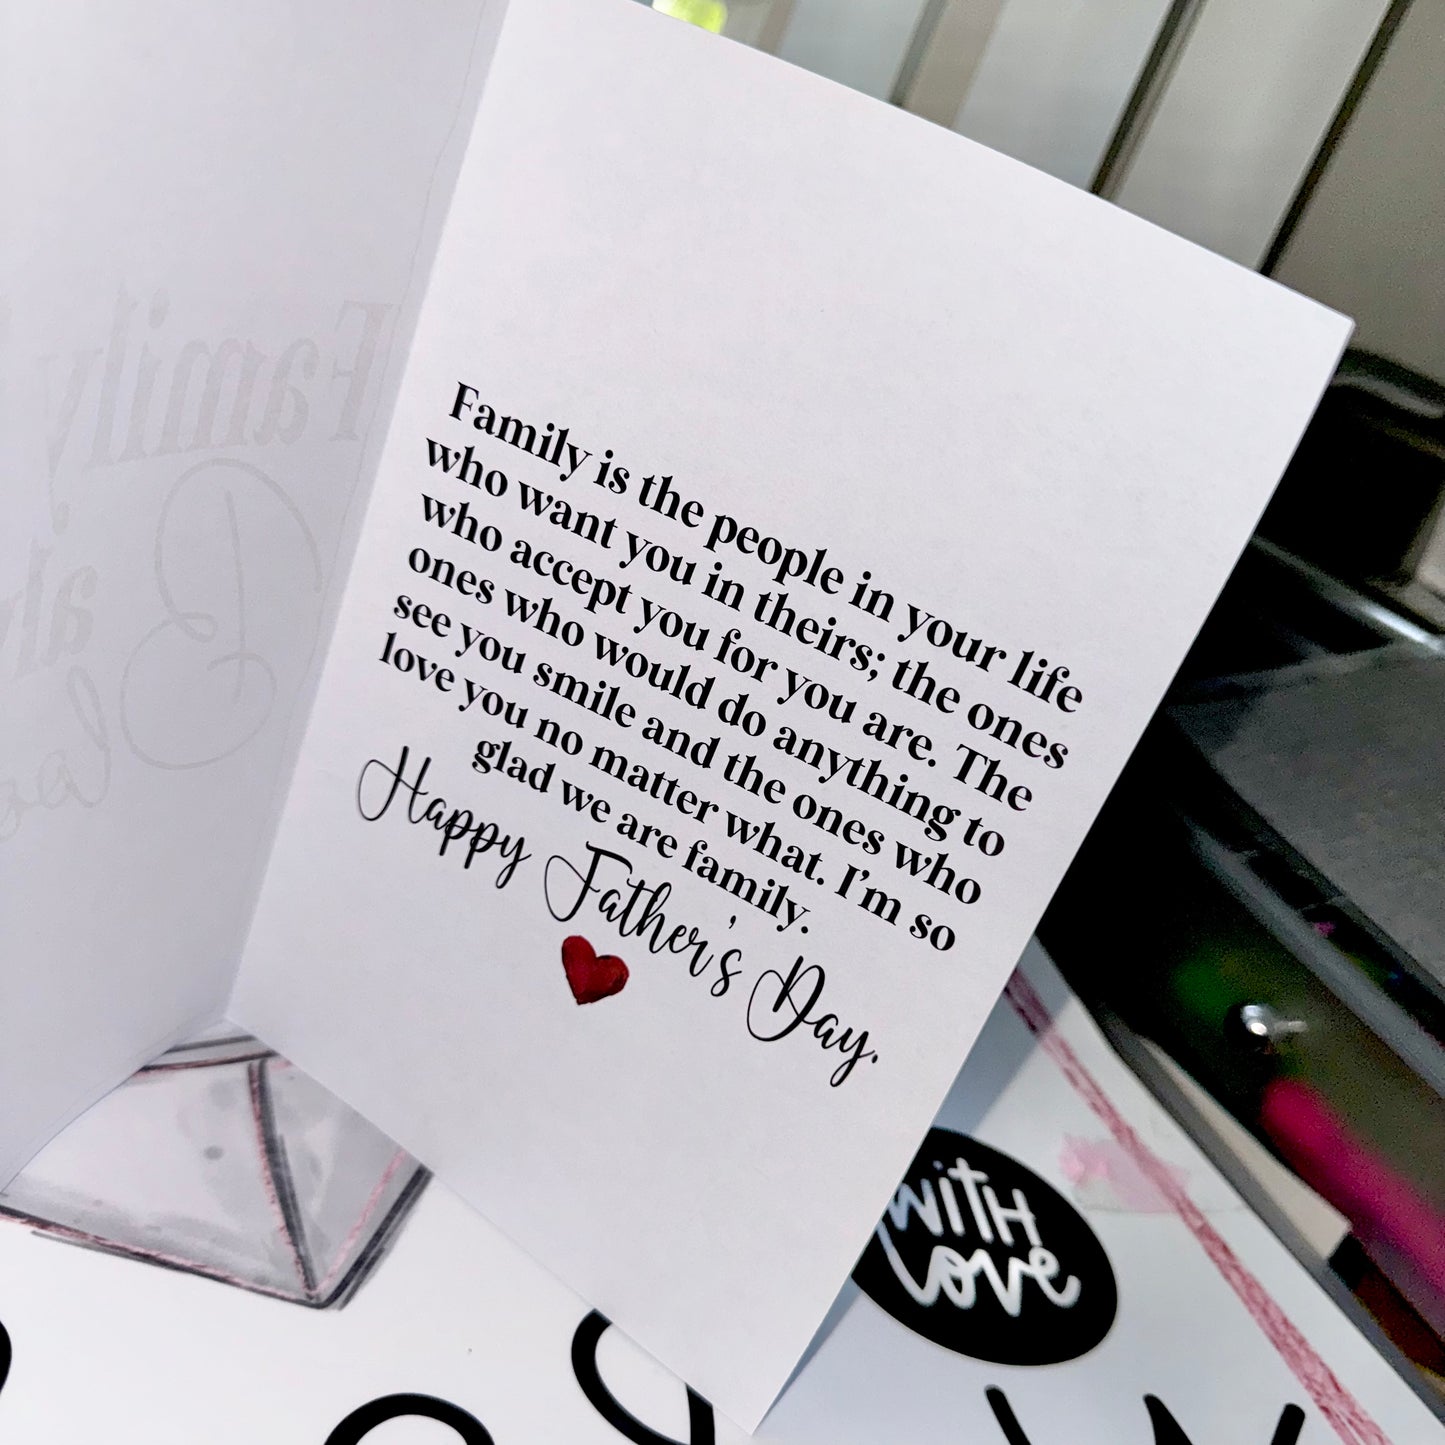 Family is the people in your life
who want you in theirs; the ones
who accept you for you are. The
ones who would do anything to
see you smile and the ones who
love you no matter what. I'm so
glad we are family.
Happy Father's Day.
Family
WITH
Love